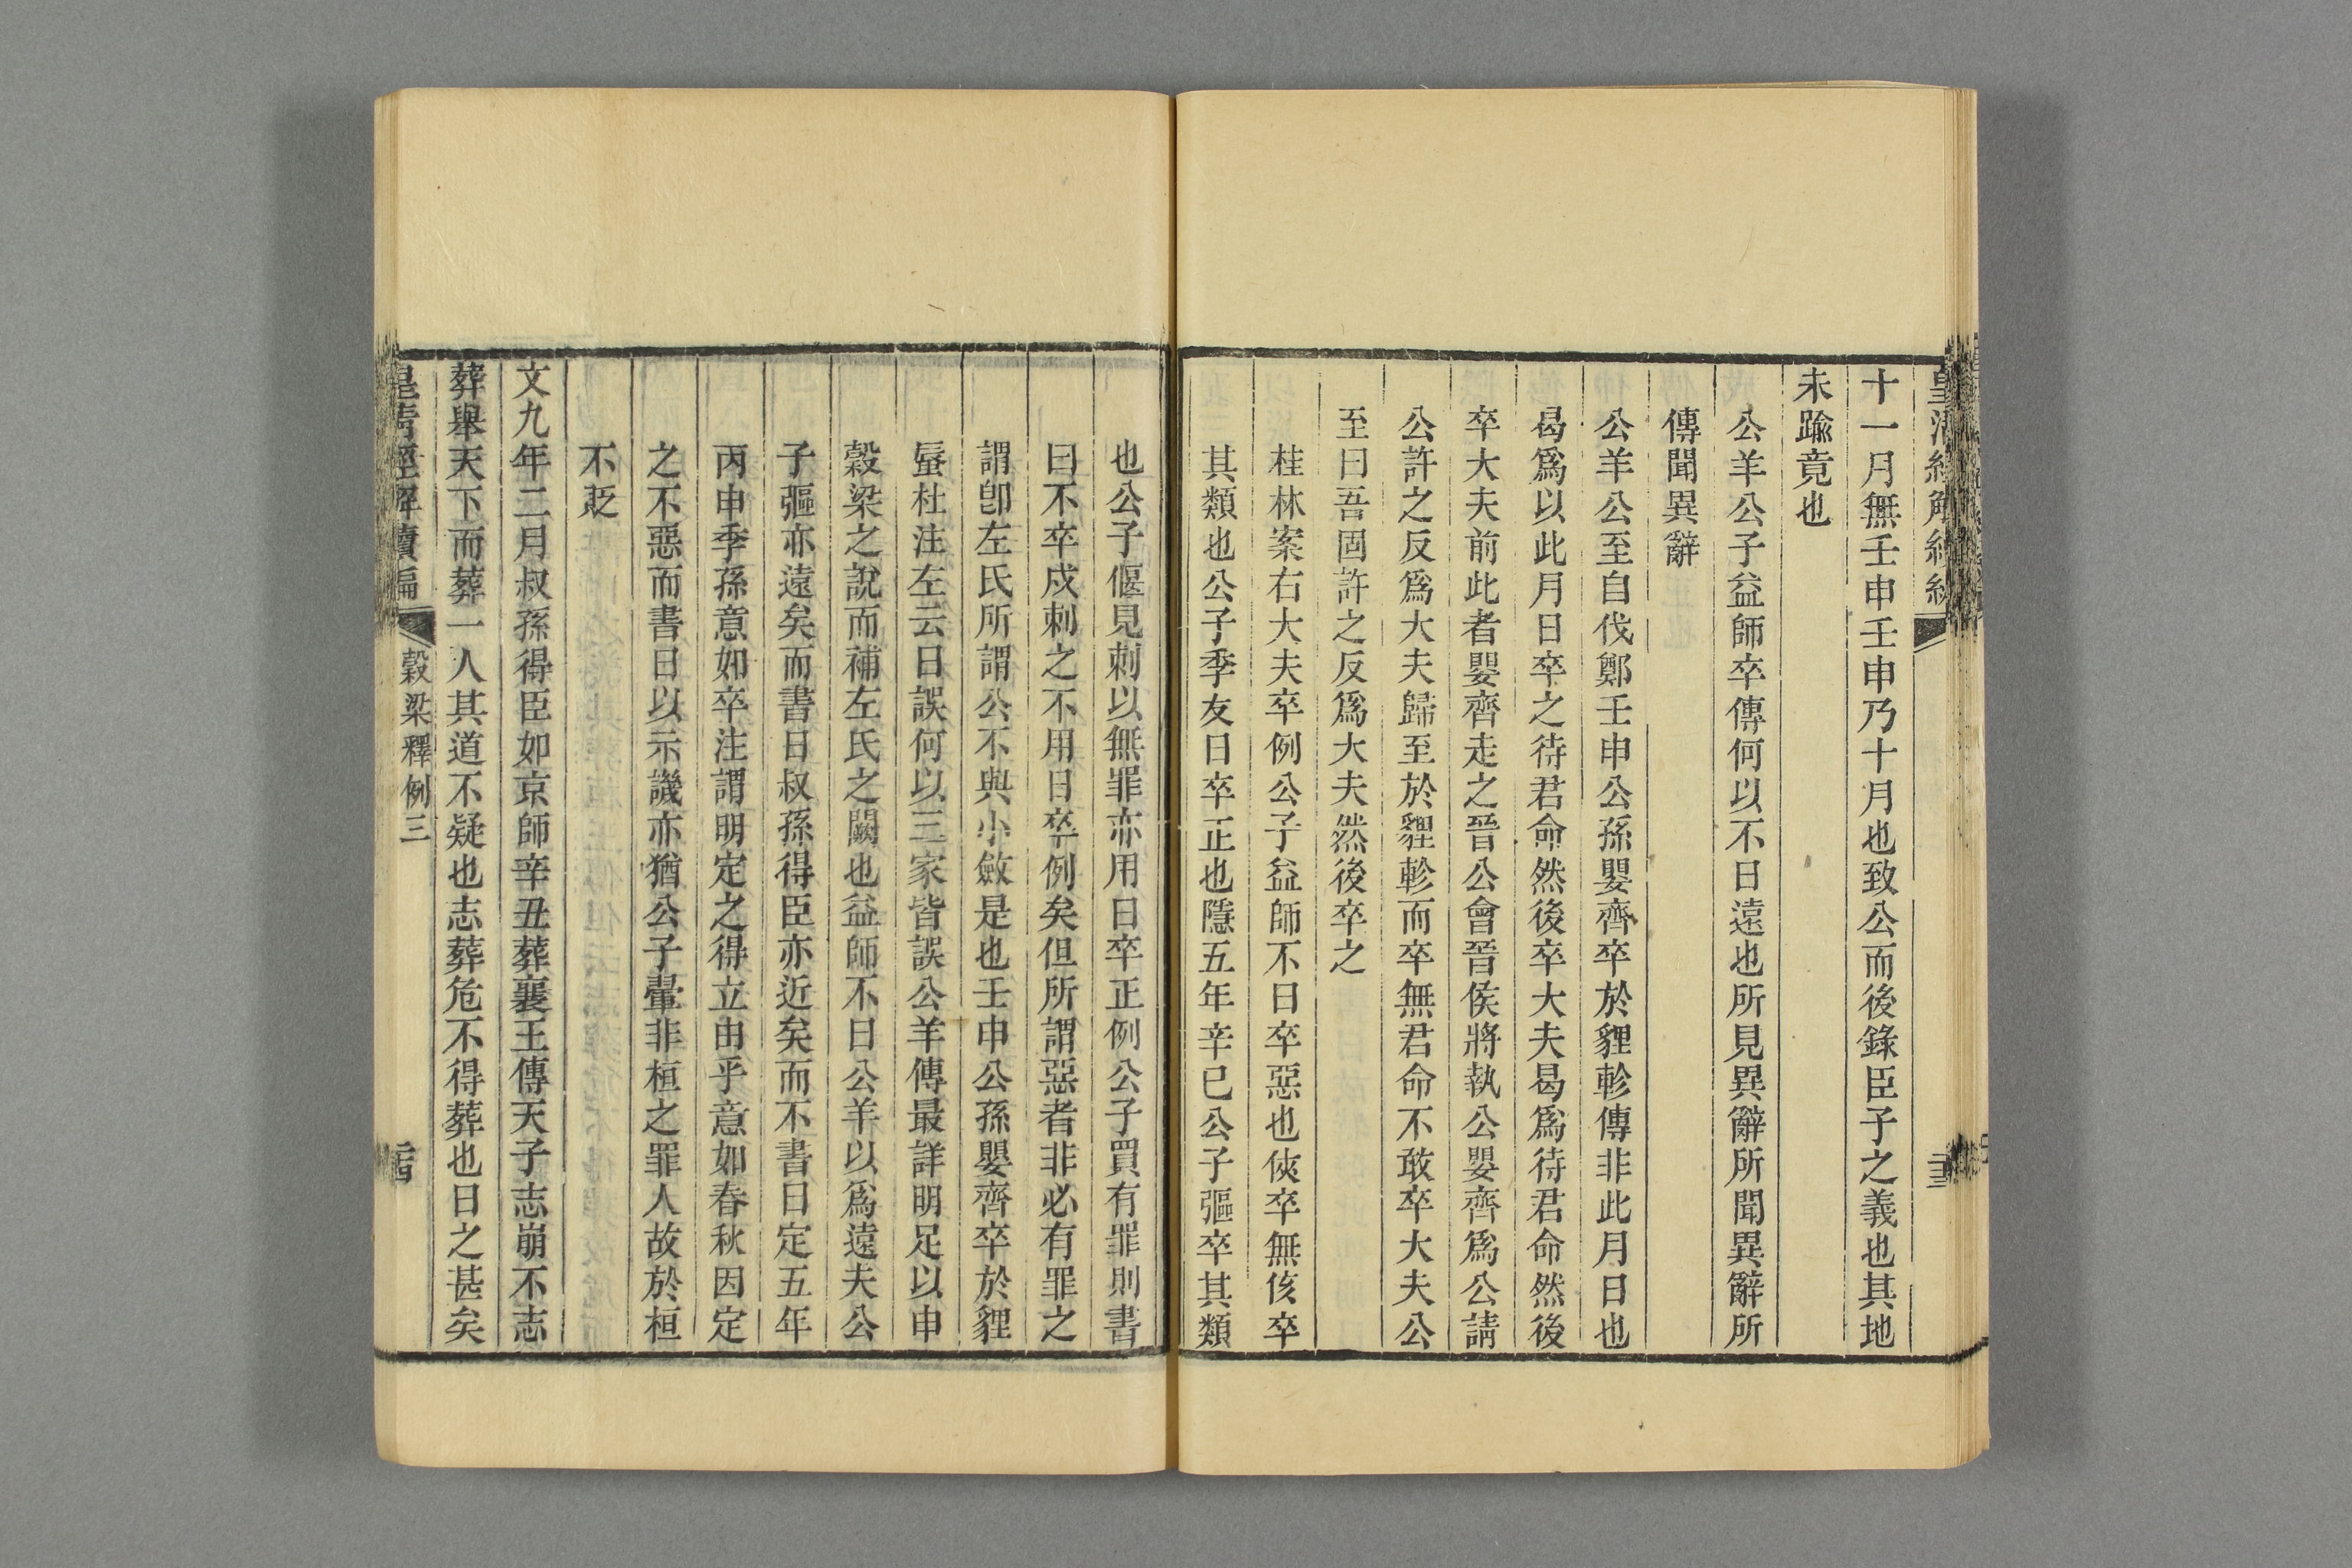 皇清經解續編
十一月無壬申壬申乃十月也致公而後錄臣子之義也其地
未踰竟也
公羊公子益師卒傳何以不日遠也所見異辭所聞異辭所
傳聞異辭
公羊公至自伐鄭壬申公孫嬰齊卒於貍軫傳非此月日也
曷爲以此月日卒之待君命然後卒大夫曷爲待君命然後
卒大夫前此者嬰齊走之晉公會晉侯將執公嬰齊爲公請
公許之反爲大夫歸至於貍軫而卒無君命不敢卒大夫公
至曰吾固許之反爲大夫然後卒之
桂林案右大夫卒例公子益師不日卒惡也俠卒無侅卒
其類也公子季友日卒正也隱五年辛巳公子彄卒其類
也公子偃見刺以無罪亦用日卒正例公子買有罪則書
曰不卒戍刺之不用日卒例矣但所謂惡者非必有罪之
謂卽左氏所謂公不與小斂是也壬申公孫嬰齊卒於貍
蜃杜注左云日誤何以三家皆誤公羊傳最詳明足以申
穀梁之說而補左氏之闕也益師不日公羊以爲遠夫公
子彄亦遠矣而書日叔孫得臣亦近矣而不書日定五年
丙申季孫意如卒注謂明定之得立由乎意如春秋因定
之不惡而書日以示譏亦猶公子翬非桓之罪人故於桓
不貶
文九年二月叔孫得臣如京師辛丑葬襄王傳天子志崩不志
葬舉天下而葬一人其道不疑也志葬危不得葬也日之甚矣
皇清經解續編
穀梁釋例三